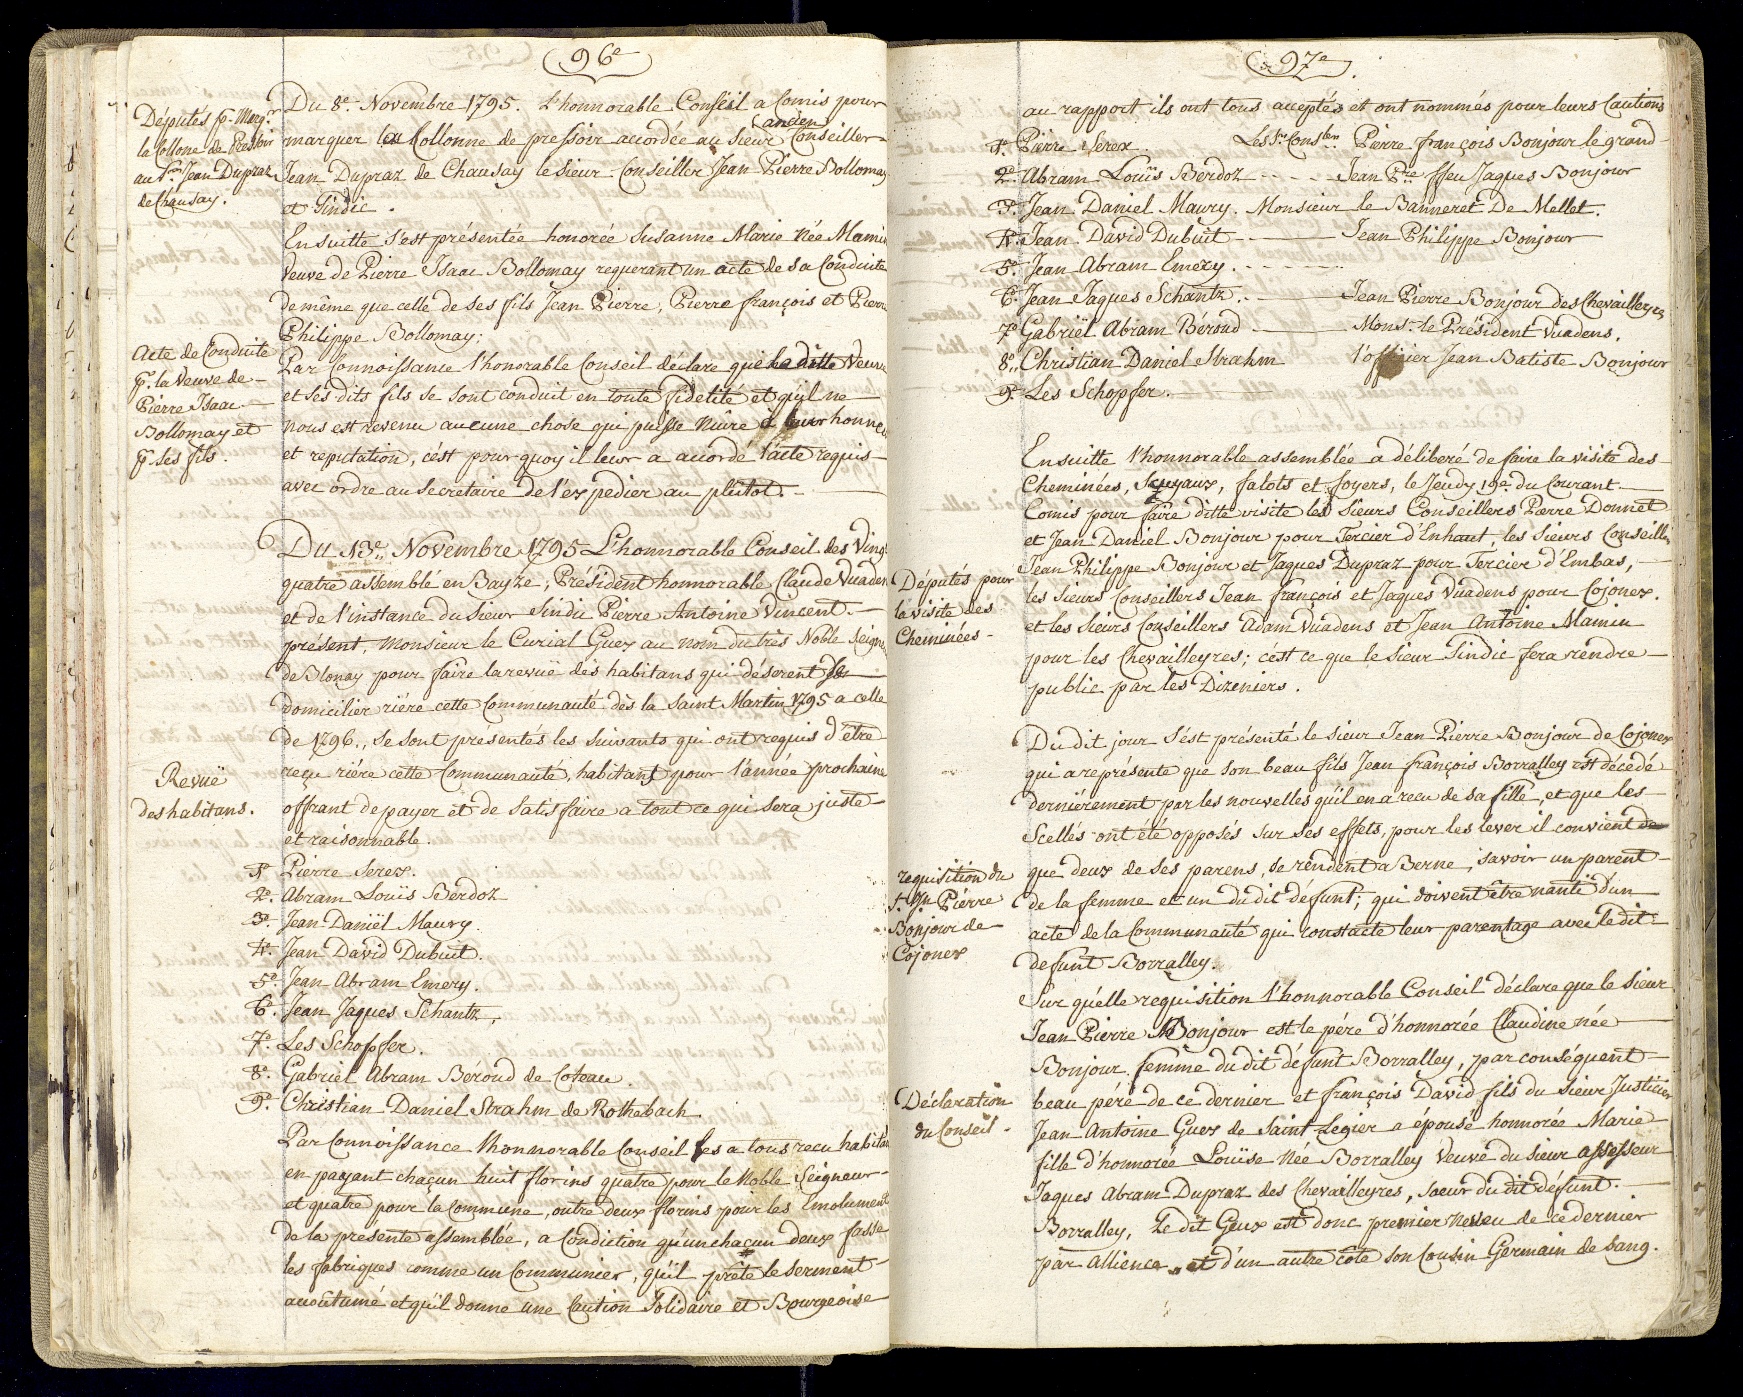 96e
Députés pr. Marqr.
la Collonne de Pressoir
au Sr. Jean Dupraz
de Chausay.
Du 8e. Novembre 1795. L'honnorable Conseil a Comis pour
ancien
marquer la Collonne de pressoir accordée au Sieur Conseiller
Jean Dupraz de Chausay le Sieur Conseiller Jean Pierre Bollomay
et Sindic.
Ensuitte s'est présentée honorée Susanne Marie Née Mamin
Veuve de Pierre Isaac Bollomay requerant un acte de sa Conduite
de même que celle de ses fils Jean Pierre, Pierre françois et Pierre
Philippe Bollomay;
Acte de Conduite
pr. la Veuve de
Pierre Isaac
Bollomay et
pr. ses fils.
Par Connoissance l'honorable Conseil déclare que la ditte Veuve
et ses dits fils se sont conduit en toute fidelité et qu'il ne
nous est revenu aucune chose qui puisse nuire à leur honneur
et reputation, c'ést pourquoy il leur a accordé l'acte requis
avec ordre au Secretaire de l'expedier au plûtot.
Du 13e. Novembre 1795 L'honnorable Conseil des Vingt
quatre assemblé en Bayze, Président honnorable Claude Vuadens
et de l'instance du Sieur Sindic Pierre Antoine Vincent.
présent, Monsieur le Curial Guex au nom du très Noble Seigneur
de Blonay pour faire la revuë des habitans qui désérent se
domicilier riére cette Communauté dès la Saint Martin 1795 a celle
de 1796., se sont présentés les Suivants qui ont requis d'être
Revuë
des habitans.
reçu riére cette Communauté, habitans pour l'année prochaine
offrant de payer et de satisfaire a tout ce qui sera juste
et raisonnable.
1e. Pierre Serex.
2e. Abram Louïs Berdoz
3e. Jean Daniël Maury.
4e. Jean David Dubuit.
5e. Jean Abram Emery.
6e. Jean Jaques Schantz,
7e. Les Schopfer.
8e. Gabriel Abram Beroud de Coteau.
9e. Christian Daniel Strahm de Rothebach.
Par Connoissance l'honnorable Conseil les a tous reçu habitans
en payant chaçun huit florins quatre pour le Noble Seigneur
et quatre pour la Commune, outre deux florins pour les Emoluments
de la presente assemblée, a Condiction qu'un chaçun deux fasse
les fabriques comme un Communier, qu'il prête le serment
accoutumé et qu'il donne une Caution Solidaire et Bourgeoise
97e.
au rapport, ils ont tous aceptés et ont nommés pour leurs Cautions
1e. Pierre Serex. Les Srs. Consllers Pierre françois Bonjour le grand
2e. Abram Louïs Berdoz Jean Pre. ffeu Jaques Bonjour
3e. Jean Daniel Maury. Monsieur le Banneret De Mellet.
4e. Jean David Dubuit Jean Philippe Bonjour
5e. Jean Abram Emery.
6e. Jean Jaques Schantz. Jean Pierre Bonjour des Chevailleyres
7e. Gabriël Abram Béroud Monsr. le Président Vuadens.
8e. Christian Daniel Strahm l'officier Jean Batiste Bonjour
9e. Les Schopfer.
Ensuitte l'honnorable assemblée a déliberé de faire la visite des
Cheminées, Tuyaux, falots et foyers, le Jeudy 19e. du Courant.
Comis pour faire ditte visite les Sieurs Conseillers Pierre Donnet
et Jean Daniel Bonjour pour Tercier d'Enhaut, les Sieurs Conseillers
Jean Philippe Bonjour et Jaques Dupraz pour Tercier d'Embas,
Députés pour
la visite des
Cheminées
les Sieurs Conseillers Jean françois et Jaques Vuadens pour Cojonex.
et les Sieurs Conseillers Adam Vuadens et Jean Antoine Mamin
pour les Chevailleyres; c'ést ce que le Sieur Sindic fera rendre
public par les Dizeniers.
Du dit jour s'ést présenté le Sieur Jean Pierre Bonjour de Cojonex
qui a représenté que son beau fils Jean françois Borralley est décedé
derniérement par les nouvelles qu'il en a recu de sa fille, et que les
Scellés ont été opposés sur ses effets, pour les lever il convient de
requisition du
S. Jn. Piérre
Bonjour de
Cojonex
que deux de ses parens, se rendent a Berne, savoir un parent
de la femme et un du dit défunt; qui doivent être nanti d'un
acte de la Communauté qui constacte leur parentage avec le dit
defunt Borralley.
Sur qu'elle requisition l'honnorable Conseil déclare que le Sieur
Jean Pierre Bonjour est le pére d'honnorée Claudine née
Bonjour femme du dit défunt Borralley, par conséquent
Déclaration
du Conseil.
beau pére de ce dernier et françois David fils du Sieur Justicier
Jean Antoine Guex de Saint Legier a épousé honnorée Marie
fille d'honnorée Louïse Née Borralley Veuve du Sieur assesseur
Jaques Abram Dupraz des Chevailleyres, soeur du dit défunt.
Borralley, Le dit Geux est donc premier neveu de ce dernier
par allience, et d'un autre côté son Cousin Germain de sang.